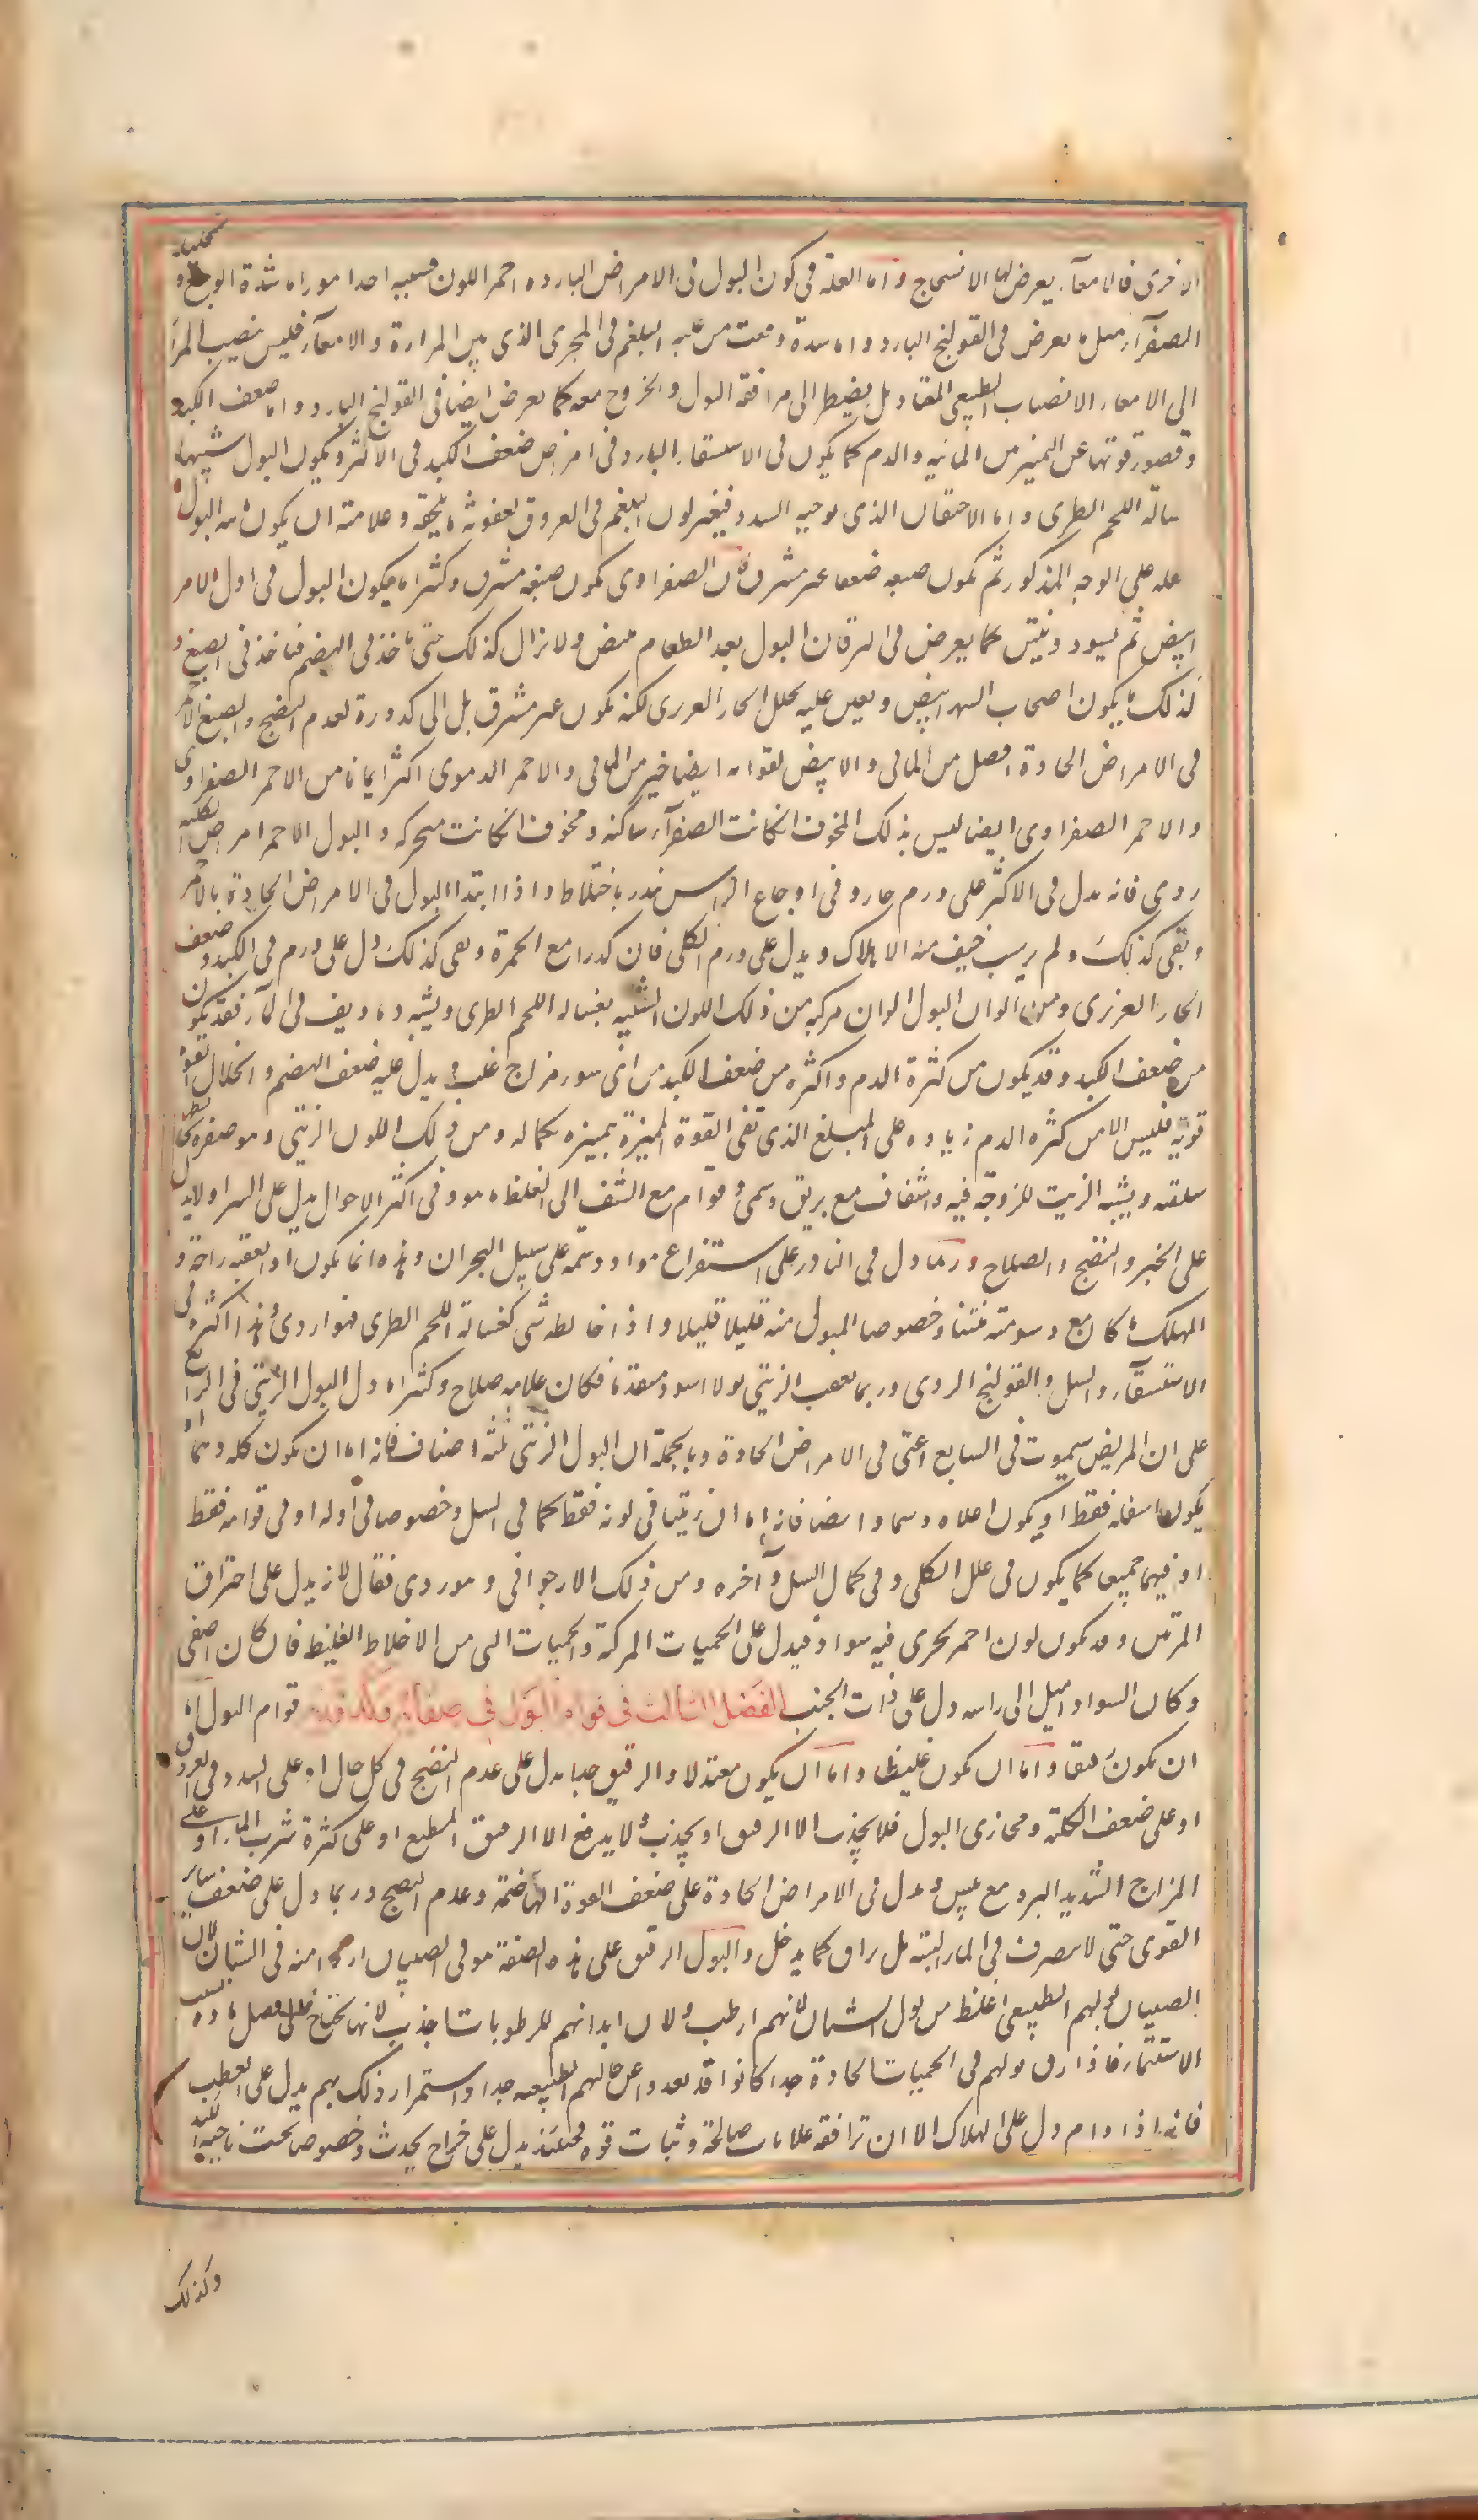 الاخرى فالامعآء يعرض لها الانسحاج واما العلة فى كون البول فى الامراض الباردة احمر اللون فسببه احد امور اما شدة الوجع و تحليله
الصفرآء مثل ما يعرض فى القولنج البارد واما سدة وقعت من غلبه البلغم فى المجرى الذى بين المرارة والامعآء فليس ينصب المرار
الى الامعاء الانصباب الطبيعى المعتاد بل يضطر الى مرافقة البول والخروج معه كما يعرض ايضا فى القولنج البارد واما ضعف الكبد
وقصور قوتها عن التمييز من المائيه والدم كما يكون فى الاستسقاء البارد وفى امراض ضعف الكبد فى الاكثر ويكون البول شبيها
بسالة اللحم الطرى واما الاحتقان الذى توجبه السدد فيتغير لون البلغم فى العروق لعفونة ما تلحقه وعلامته ان يكون مائيه البول
على الوجه المذكور ثم يكون صبغه ضعيفا غير مشرق لان الصفراوى يكون صبغه مشرق وكثيرا ما يكون البول فى اول الامر
ابيض ثم يسود وينتن كما يعرض فى اليرقان البول بعد الطعام يبيض ولا يزال كذلك حتى ياخذ فى الهضم فياخذ فى الصبغ و
لذلك ما يكون اصحاب السهر ابيض ويعين عليه تحلل الحار الغريزى لكنه يكون غير مشرق بل الى كدورة لعدم النضج والصبغ الاحمر
فى الامراض الحادة افضل من المائى والابيض لقوامه ايضا خير من المائى والاحمر الدموى اكثر امانا من الاحمر الصفراوى
والاحمر الصفراوى ايضا ليس بذلك المخوف ان كانت الصفرآء ساكنة ومخوف ان كانت متحركه والبول الاحمر امراض الكليه
ردى فانه يدل فى الاكثر على ورم حار وفى اوجاع الراس ينذر باختلاط واذا ابتدا البول فى الامراض الحادة بالاحمر
وبقى كذلك ولم يرسب خيف منه الهلاك ويدل على ورم الكلى فان كدرا مع الحمرة وبقى كذلك دل على ورم فى الكبد وضعف
الحار الغريزى ومن الوان البول الوان مركبه من ذلك اللون الشبيه بغساله اللحم الطرى ويشبه دما ديف فى المآء فقد يكون
من ضعف الكبد وقد يكون من كثرة الدم واكثره من ضعف الكبد من اى سوء مزاج غلب ويدل عليه ضعف الهضم وانحلال القوة
قوته فليس الا من كثره الدم زياده على المبلغ الذى تفى القوة المميزة بتمييزه بكماله ومن ذلك اللون الزيتى وهو صفره يخالطها
سلقيه ويشبه الزيت للزوجة فيه واشفاف مع بريق دسمى وقوام مع الشف الى الغلظ ما هو وفى اكثر الاحوال يدل على الشر ولا يدل
على الخير والنضج والصلاح وربما دل فى النادر على استفراغ مواد دسمة على سبيل البحران وهذه انما يكون اذا تعقبه راحة و
المهلك ما كان مع دسومته منتنا وخصوصا المبول منه قليلا قليلا واذا خالطه شى كغسالة اللحم الطرى فهو اردى وهذا اكثره فى
الاستسقآء والسل والقولنج الردى وربما تعقب الزيتى بولا اسود متقدما فكان علامه صلاح وكثيرا ما دل البول الزيتى فى الرابع
على ان المريض سيموت فى السابع اعنى فى الامراض الحادة وبالجملة ان البول الزيتى ثلثة اصناف فانه اما ان يكون كله دسما او
يكون اسفله فقط او يكون اعلاه دسما وايضا فانه اما ان زيتيا فى لونه فقط كما فى السل وخصوصا فى اوله او فى قوامه فقط
او فيهما جميعا كما يكون فى علل الكلى وفى كمال السل وآخره ومن ذلك الارجوانى وهو ردى قتال لانه يدل على احتراق
المرتين وقد يكون لون احمر يجرى فيه سواد فيدل على الحميات المركبة والحميات التى من الاخلاط الغليظ فان كان اصفى
وكان السواد اميل الى راسه دل على ذات الجنب الفصل الثالث فى قوام البول فى صفائه وكدورته قوام البول اما
ان يكون رقيقا واما ان يكون غليظا واما ان يكون معتدلا والرقيق جدا يدل على عدم النضج فى كل حال او على السدد فى العروق
او على ضعف الكلية ومجارى البول فلا يجذب الا الرقيق او يجذب ولا يدفع الا الرقيق المطيع او على كثرة شرب الماء او على
المزاج الشديد البرد مع يبس ويدل فى الامراض الحادة على ضعف القوة الهاضمة وعدم النضج وربما دل على ضعف ساير
القوى حتى لا يتصرف فى الماء البتة بل يزلق كما يدخل والبول الرقيق على هذه الصفة هو فى الصبيان اردى منه فى الشبان لان
الصبيان بولهم الطبيعى اغلظ من بول الشبان لانهم ارطب ولان ابدانهم للرطوبات اجذب لانها تحتاج الى فضل مادة بسبب
الاستنماء فاذا رق بولهم فى الحميات الحادة جدا كانوا قد بعدوا عن حالهم الطبيعيه جدا واستمرار ذلك بهم يدل على العطب
فانه اذا دام دل على الهلاك الا ان ترافقه علامات صالحة وثبات قوه فحينئذ يدل على خراج يحدث وخصوصا تحت ناحية الكبد
وكذلك